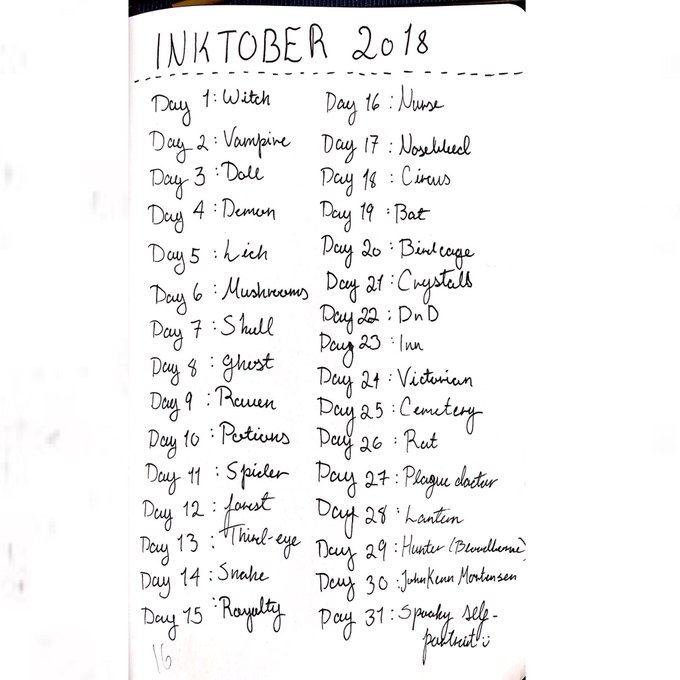 INKTOBER 2018
Day 1: Witch
Day 2: Vampire
Day 3: Doll
Day 4: Demon
Day 5: Lich
Day 6: Mushrooms
Day 7: Skull
Day 8: Ghost
Day 9: Raven
Day 10: Potions
Day 11: Spider
Day 12: forest
Day 13: Third-eye
Day 14: Snake
Day 15: Royalty
16
Day 16: Nurse
Day 17: Nosebleed
Day 18: Circus
Day 19: Bat
Day 20: Birdcage
Day 21: Crystals
Day 22: DnD
Day 23: Inn
Day 24: Victorian
Day 25: Cemetery
Day 26: Rat
Day 27: Plague doctor
Day 28: Lantern
Day 29: Hunter (Bloodborne)
Day 30: John Kenn Mortensen
Day 31: Spooky self-
portrait :)